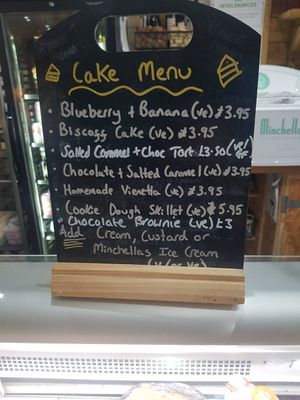 INTOLERANCES
Cake Menu
Blueberry + Banana (ve) £3.95
Biscoff Cake (ve) £3.95
Salted Caramel + Choc Tart £3.50 (ve/GF)
Chocolate + Salted Caramel (ve) £3.95
Homemade Vienetta (ve) £3.95
Cookie Dough Skillet (ve) £5.95
Chocolate Brownie (ve) £3
Add Cream, Custard or
Minchellas Ice Cream
(v/or ve)
Minchell